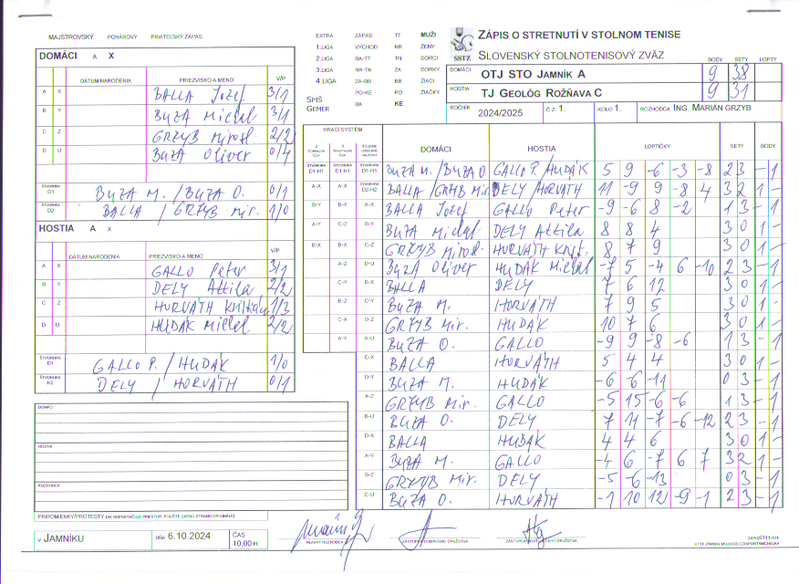 MAJSTROVSKÝ POHÁROVÝ PRIATEĽSKÝ ZÁPAS
DOMÁCI A X
DÁTUM NARODENIA PRIEZVISKO A MENO V/P
A X BALLA Jozef 3/1
B Y BUZA Michal 3/1
C Z GRZYB Mirosl. 2/2
D U BUZA Oliver 0/4
ŠTVORHRA D1 BUZA M. / BUZA O. 0/1
ŠTVORHRA D2 BALLA / GRZYB Mir. 1/0
HOSTIA A X
DÁTUM NARODENIA PRIEZVISKO A MENO V/P
A X GALLO Peter 3/1
B Y DELY Attila 2/2
C Z HORVÁTH 1/3
D U HUDÁK Michal 2/2
ŠTVORHRA GALLO P. / HUDÁK 1/0
ŠTVORHRA DELY / HORVÁTH 0/1
DOMÁCI
HOSTIA
ROZHODCA
V JAMNÍKU DŇA 6.10.2024 ČAS 10,00 H.
EXTRA ZÁPAD TT MUŽI
1.LIGA VÝCHOD NR ŽENY
2.LIGA BA-TT TN DORCI
3.LIGA NR-TN ZA DORKY
4.LIGA ZA-BB BB ŽIACI
PO-KE PO ŽIAČKY
BA KE
SPIŠ
GEMER
SSTZ
ZÁPIS O STRETNUTÍ V STOLNOM TENISE
SLOVENSKÝ STOLNOTENISOVÝ ZVÄZ
BODY SETY LOPTY
DOMÁCI OTJ STO JAMNÍK A 9 38
HOSTIA TJ GEOLÓG ROŽŇAVA C 9 31
ROČNÍK 2024/2025 Č.Z. 1. KOLO 1. ROZHODCA ING. MARIÁN GRZYB
HRACÍ SYSTÉM DOMÁCI HOSTIA LOPTIČKY SETY BODY
D1-H1 D1-H1 D1-H1 BUZA M. / BUZA O GALLO P. / HUDÁK 5 9 -6 -3 -8 2 3 - 1
A-X A-X D2-H2 BALLA / GRZYB Mir. DELY / HORVÁTH 11 -9 9 -8 4 3 2 1 -
B-Y B-Y A-X BALLA Jozef GALLO Peter -9 -6 8 -2 1 3 - 1
A-Y C-Z B-Y BUZA Michal DELY Attila 8 8 4 3 0 1 -
B-X B-X C-Z GRZYB Mirosl. HORVÁTH 8 7 9 3 0 1 -
A-Z D-U BUZA Oliver HUDÁK Michal -7 5 -4 6 -10 2 3 - 1
C-Y B-X BALLA DELY 7 6 12 3 0 1 -
B-Z C-Y BUZA M. HORVÁTH 7 9 5 3 0 1 -
C-X D-Z GRZYB Mir. HUDÁK 10 7 6 3 0 1 -
A-Y A-U BUZA O. GALLO -9 9 -8 -6 1 3 - 1
C-X BALLA HORVÁTH 5 4 4 3 0 1 -
D-Y BUZA M. HUDÁK -6 -6 -11 0 3 - 1
A-Z GRZYB Mir. GALLO -5 15 -6 -6 1 3 - 1
B-U BUZA O. DELY 7 11 -7 -6 -12 2 3 - 1
D-X BALLA HUDÁK 4 4 6 3 0 1 -
A-Y BUZA M. GALLO -4 6 -7 6 7 3 2 1 -
B-Z GRZYB Mir. DELY -5 -6 -13 0 3 - 1
C-U BUZA O. HORVÁTH -1 10 12 -9 -1 2 3 - 1